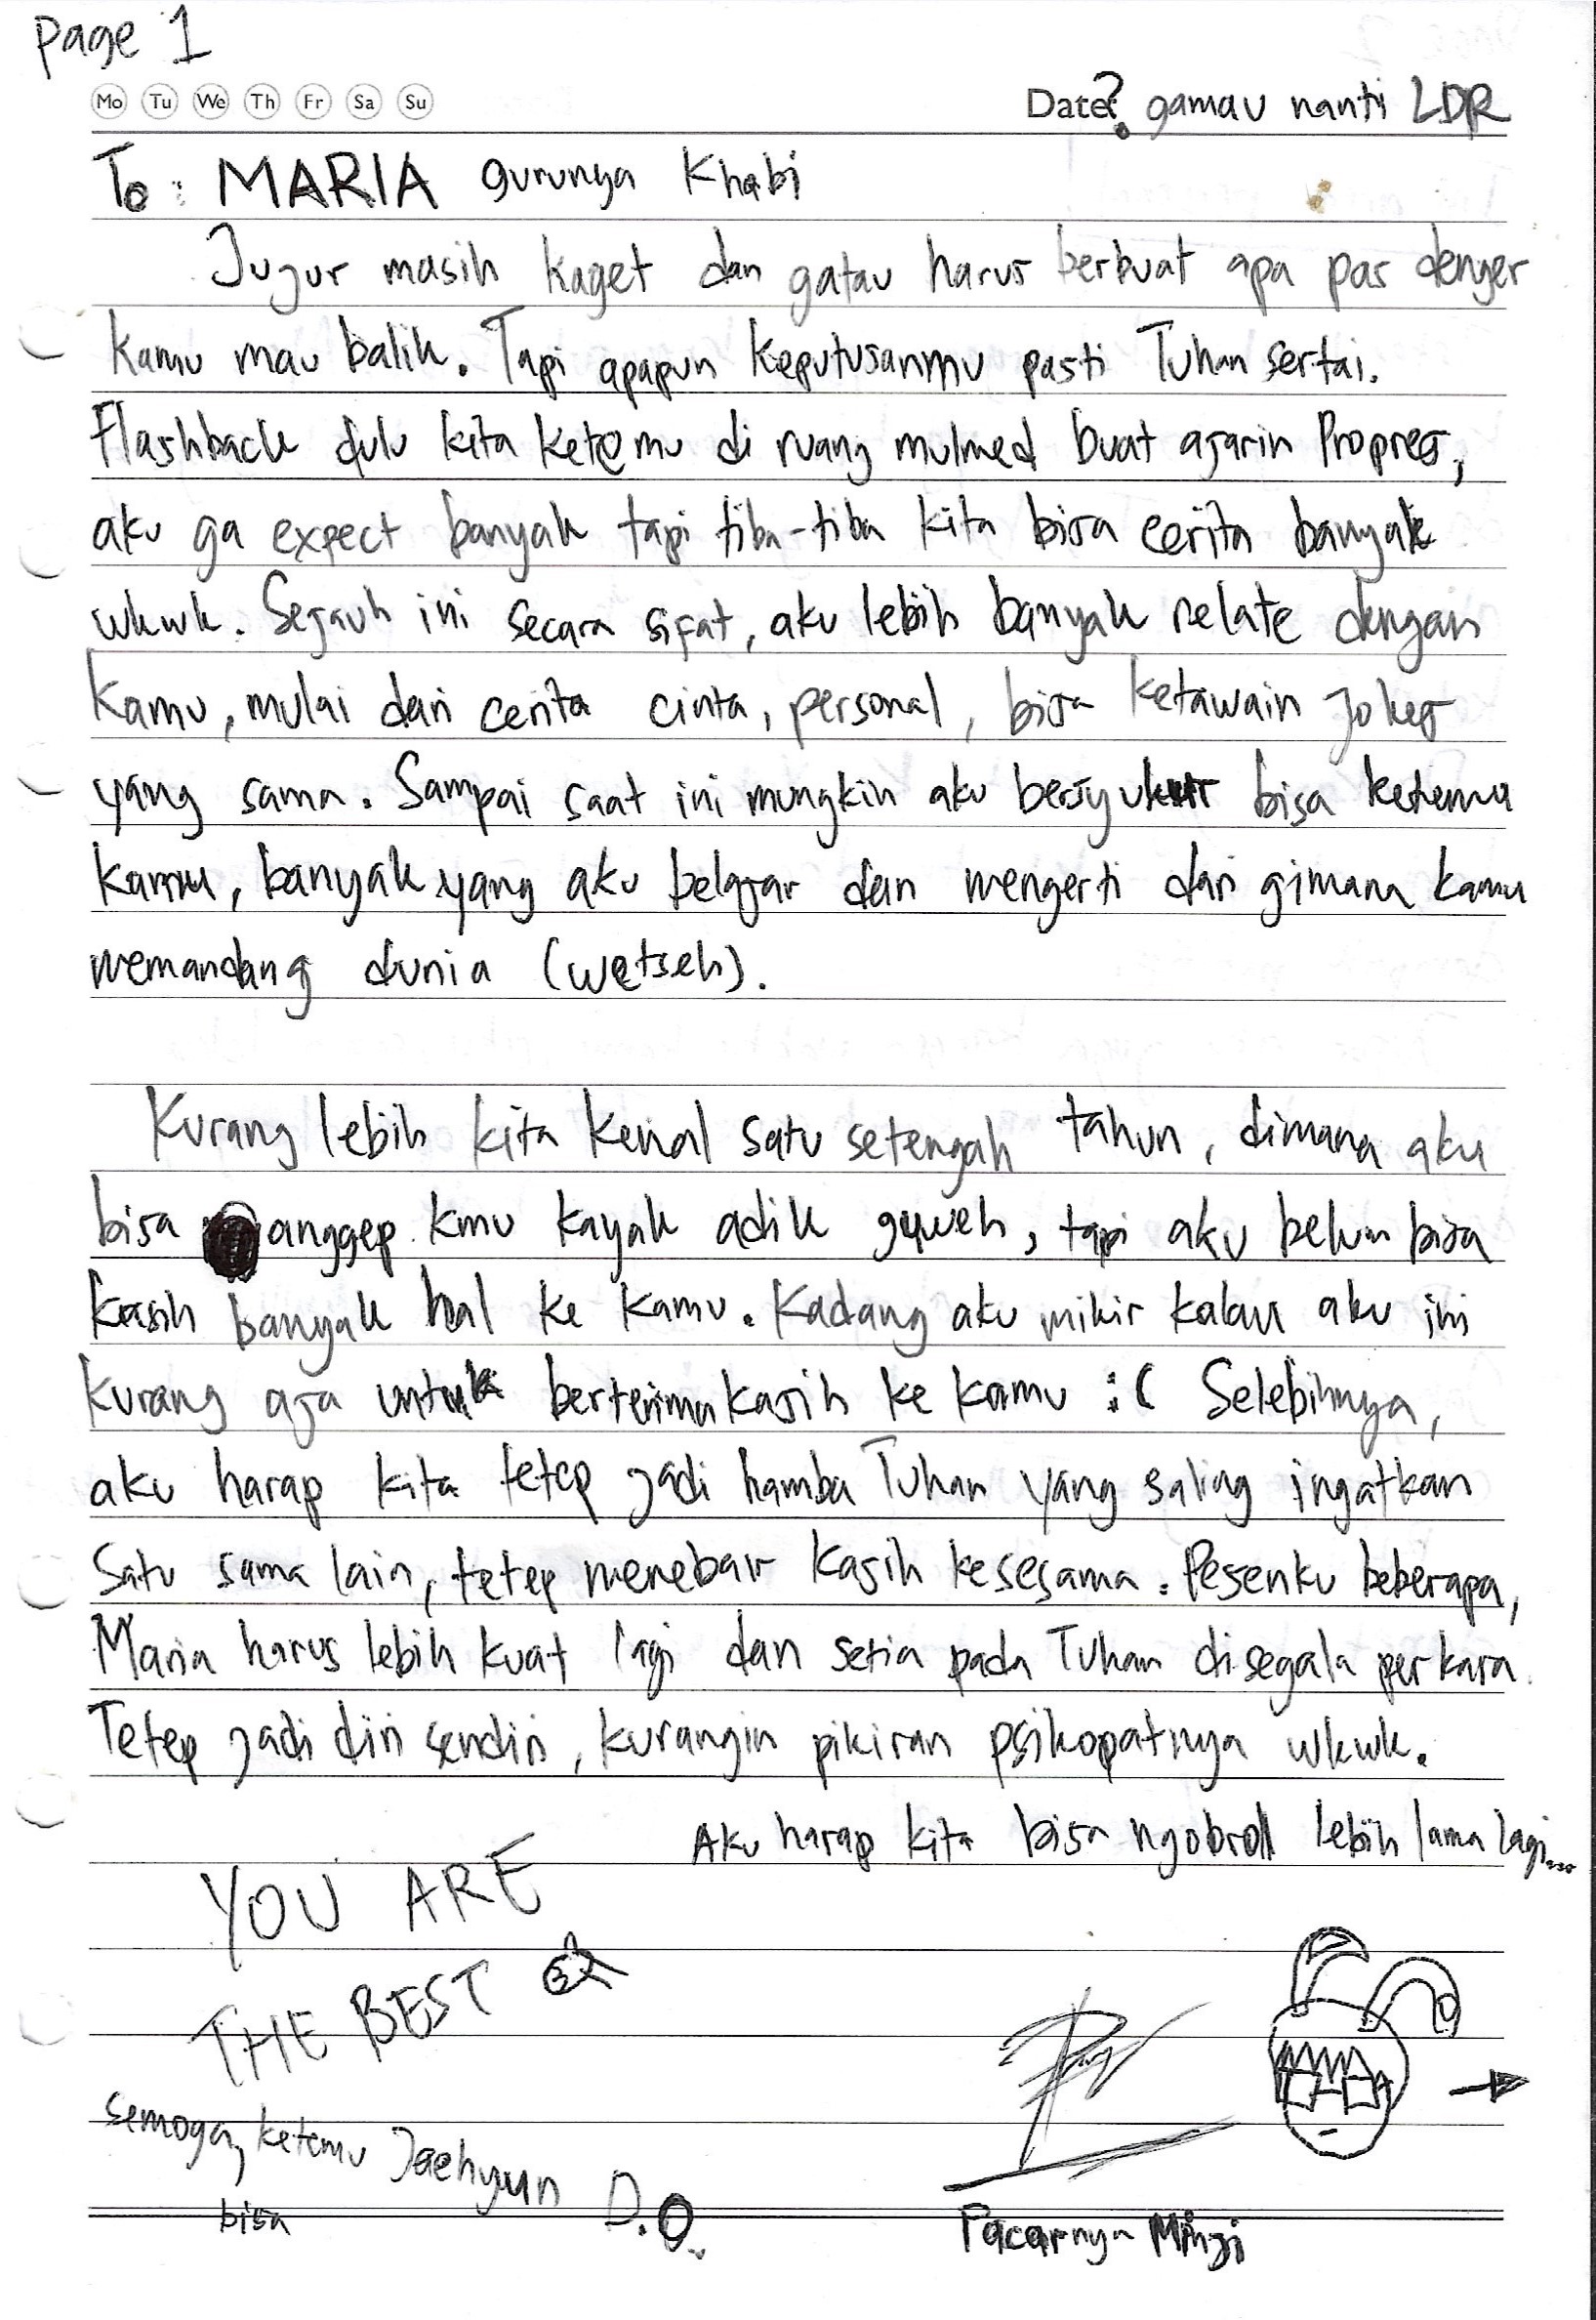 Page 1
Mo Tu We Th Fr Sa Su
Date? gamau nanti LDR
To : MARIA gurunya Khabi
Jujur masih kaget dan gatau harus berbuat apa pas denger
kamu mau balik. Tapi apapun keputusanmu pasti Tuhan sertai.
Flashback dulu kita ketemu di ruang mulmed buat ajarin Propres,
aku ga expect banyak tapi tiba-tiba kita bisa cerita banyak
wkwk. Sejauh ini secara sifat, aku lebih banyak relate dengan
kamu, mulai dari cerita cinta, personal, bisa ketawain jokes
yang sama. Sampai saat ini mungkin aku bersyukur bisa ketemu
kamu, banyak yang aku belajar dan mengerti dari gimana kamu
memandang dunia (wetseh).
Kurang lebih kita kenal satu setengah tahun, dimana aku
bisa anggep kmu kayak adik guweh, tapi aku belum bisa
kasih banyak hal ke kamu. Kadang aku mikir kalau aku ini
kurang aja untuk berterimakasih ke kamu :( Selebihnya,
aku harap kita tetep jadi hamba Tuhan yang saling ingatkan
satu sama lain, tetep menebar kasih kesesama. Pesenku beberapa,
Maria harus lebih kuat lagi dan setia pada Tuhan disegala perkara.
Tetep jadi diri sendiri, kurangin pikiran psikopatnya wkwk.
Aku harap kita bisa ngobrol lebih lama lagi...
YOU ARE
THE BEST
semoga ketemu Jaehyun D.O.
bisa
Pacarnya Minji